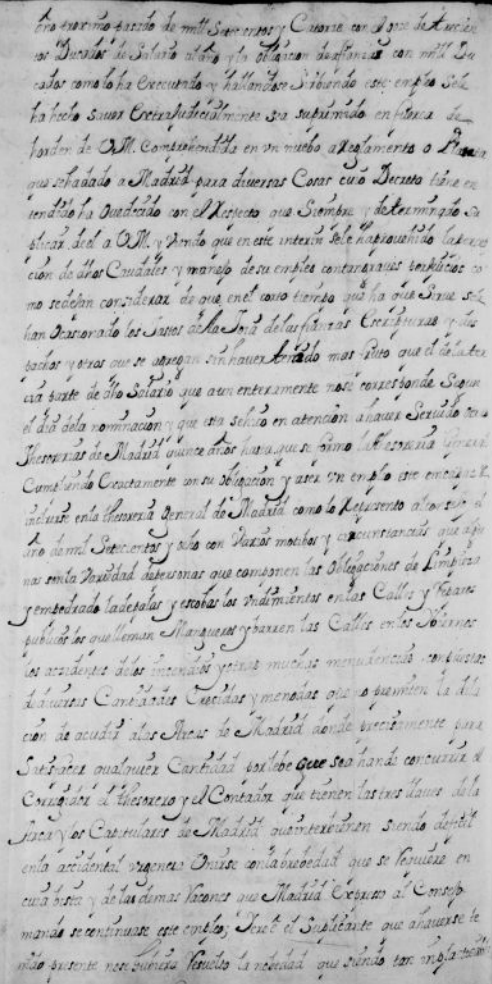 año proximo pasado de mill Setecientos y Catorze con el goze de trescien
tos Ducados de Salario al año y la obligacion de afianzar con mill Du
cados como lo ha executado y hallandose Sirbiendo este empleo Sele
ha hecho saver Extrajudicialmente sea suprimido en fuerza de
horden de V.M. Comprehendida en un nuebo Reglamento o Planta
que se ha dado a Madrid para diversas Cosas cuio Decreto tiene en
tendido ha Ovedecido con el Respecto que Siempre y determinado Su
plicar de el a V.M. y Viendo que en este interin sele ha provehido la
cion de dhos Caudales y manejo de su empleo contan graves perjuicios co
mo se dejan considerar de que en el corto tiempo que ha que Sirve sele
han Ocasionado los Gastos de las fianzas Escripturas y des
pachos y otros que se agregan sin haver tenido mas fruto que el de la ter
cia parte de dho Salario que aun enteramente no se corresponde Segun
el dia dela nominacion y que esta se hizo en atencion a haver Servido en las
Thesorerias de Madrid quince años hasta que se formo la Thesoreria General
Cumpliendo Exactamente con su obligacion y a ser un empleo este incapaz de
incluirse en la thesoreria general de Madrid como lo Represento al consejo el
año de mil Setecientos y ocho con Varios motibos y circunstancias que
nas son la Variedad de personas que componen las Obligaciones de Limpieza
y empedrado la de palas y escobas los undimientos en las Calles y
publicos los que llaman Mangueros y barren las Calles en los Ybiernos
los accidentes de los incendios y otras muchas menudencias compuestas
de diversas Cantidades Crecidas y menodas que no permiten la dila
cion de acudir a las Arcas de Madrid donde precisamente para
Satisfacer qualquier Cantidad por lebe que sea han de concurrir el
Corregidor el thesorero y el Contador que tienen las tres llaves de la
Arca y los Capitulares de Madrid que interbienen siendo dificil
en la accidental urgencia Unirse con la brebedad que se requiere en
cuia bista y de las demas razones que Madrid Expreso al Consejo
mando se continuase este empleo; el Suplicante que a haverse te
nido presente no se hubiera Resuelto la nobedad que siendo tan